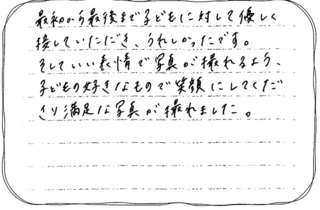 最初から最後まで子どもに対して優しく
接していただき、うれしかったです。
そしていい表情で写真が撮れるよう、
子どもの好きなもので笑顔にしてくだ
さり満足な写真が撮れました。